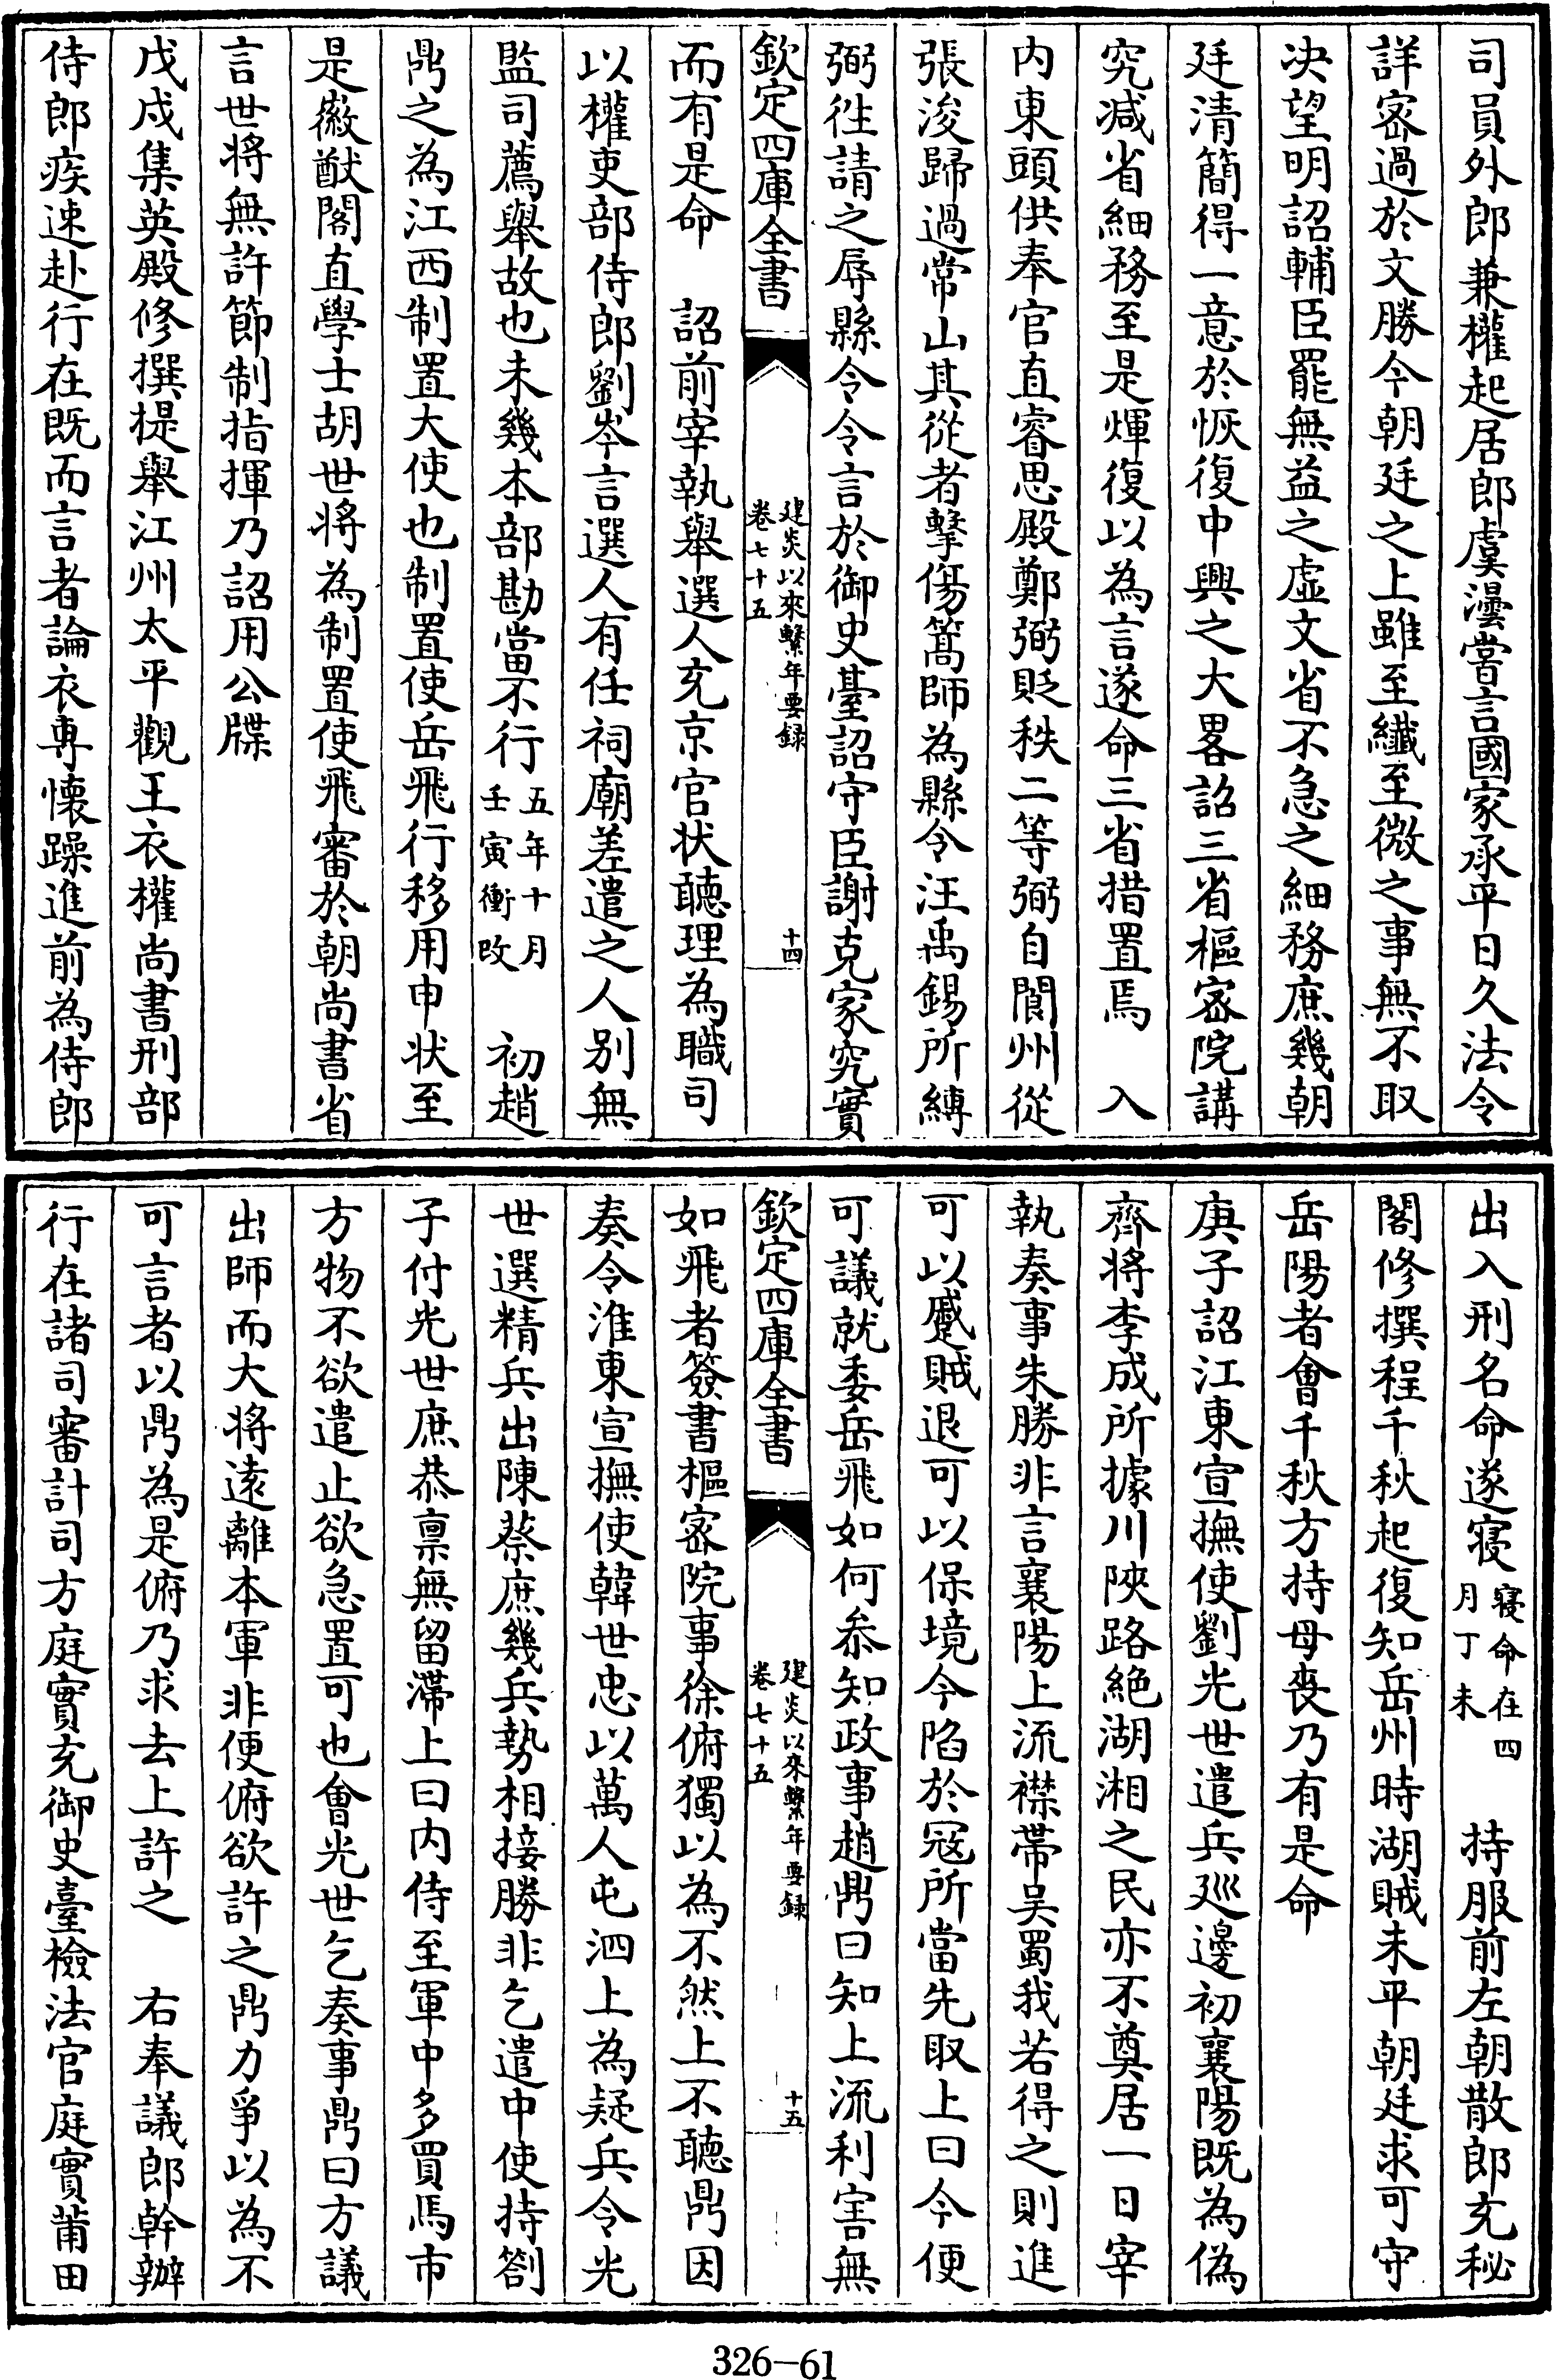 司員外郎兼權起居郎虞澐嘗言國家承平日久法令
詳密過於文勝今朝廷之上雖至纖至微之事無不取
决望明詔輔臣罷無益之虚文省不急之細務庶幾朝
廷清簡得一意於恢復中興之大畧詔三省樞密院講
究減省細務至是煇復以為言遂命三省措置焉　入
内東頭供奉官直睿思殿鄭弼貶秩二等弼自閬州從
張浚歸過常山其從者擊傷篙師為縣令汪禹錫所縛
弼往請之辱縣令令言於御史臺詔守臣謝克家究實
欽定四庫全書　建炎以來繫年要録　卷七十五　十四
而有是命　詔前宰執舉選人充京官状聽理為職司
以權吏部侍郎劉岑言選人有任祠廟差遣之人别無
監司薦舉故也未幾本部勘當不行五年十月壬寅衝改　初趙
鼎之為江西制置大使也制置使岳飛行移用申状至
是徽猷閣直學士胡世将為制置使飛審於朝尚書省
言世将無許節制指揮乃詔用公牒
戊戌集英殿修撰提舉江州太平觀王衣權尚書刑部
侍郎疾速赴行在既而言者論衣専懐躁進前為侍郎
出入刑名命遂寝寝命在四月丁未　持服前左朝散郎充秘
閣修撰程千秋起復知岳州時湖賊未平朝廷求可守
岳陽者會千秋方持母丧乃有是命
庚子詔江東宣撫使劉光世遣兵廵邊初襄陽既為偽
齊将李成所據川陜路絶湖湘之民亦不奠居一日宰
執奏事朱勝非言襄陽上流襟帶吴蜀我若得之則進
可以蹙賊退可以保境今陷於冦所當先取上曰今便
可議就委岳飛如何叅知政事趙鼎曰知上流利害無
欽定四庫全書　建炎以來繫年要録　卷七十五　十五
如飛者簽書樞密院事徐俯獨以為不然上不聽鼎因
奏令淮東宣撫使韓世忠以萬人屯泗上為疑兵令光
世選精兵出陳蔡庶幾兵勢相接勝非乞遣中使持劄
子付光世庶恭禀無留滯上曰内侍至軍中多買馬市
方物不欲遣止欲急置可也會光世乞奏事鼎曰方議
出師而大将逺離本軍非便俯欲許之鼎力爭以為不
可言者以鼎為是俯乃求去上許之　右奉議郎幹辦
行在諸司審計司方庭實充御史臺檢法官庭實莆田
326—61